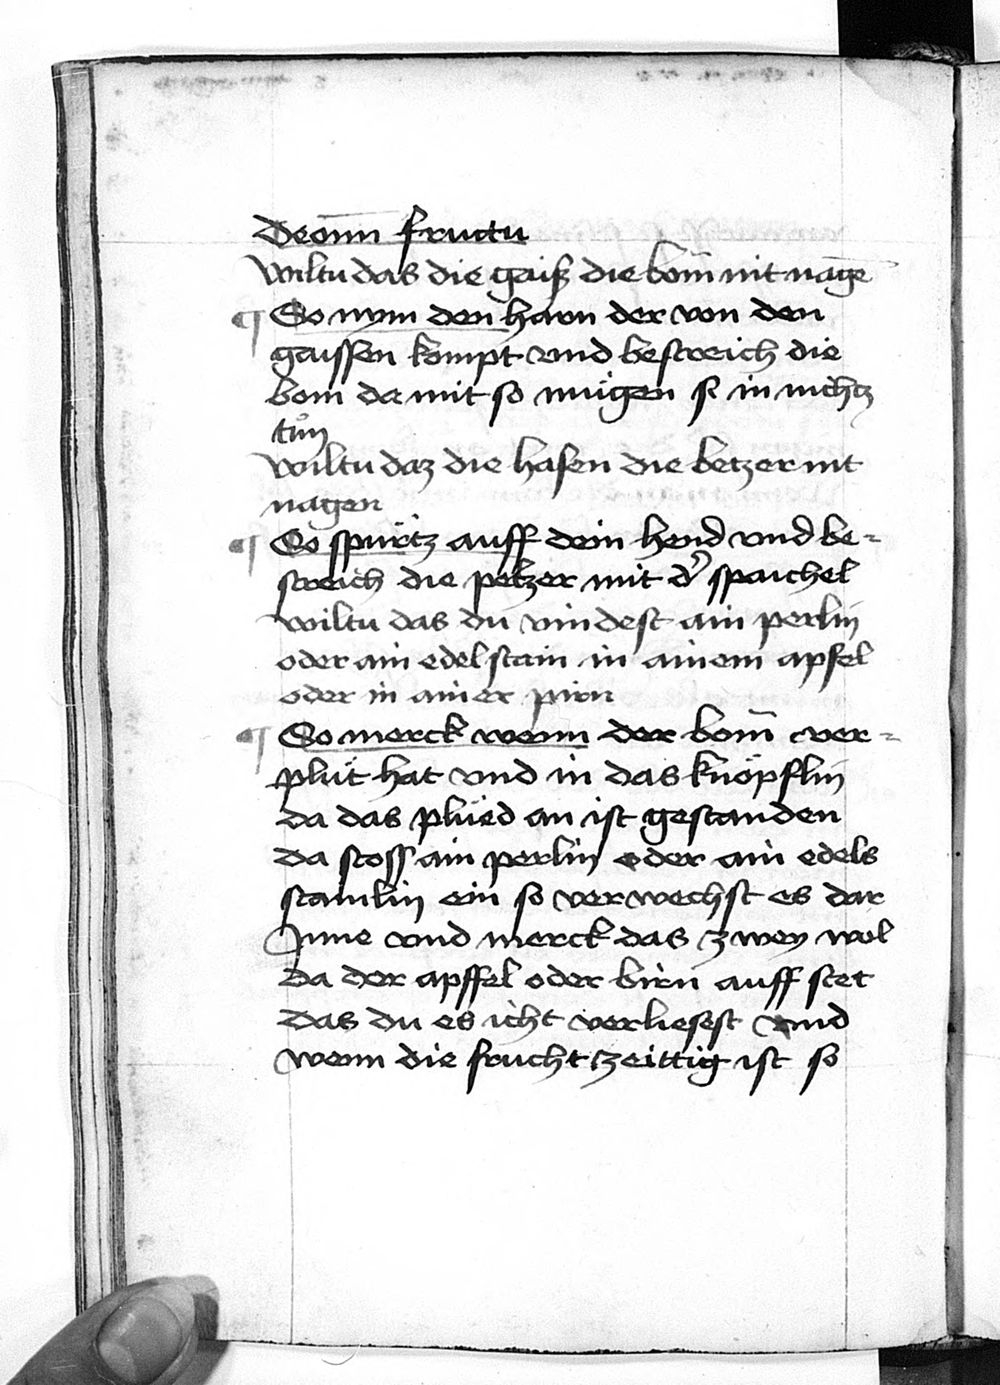 De om̄i fructu
Wiltu das die gaiß die bom̄ nit nagē
¶ So nym den harn der von den
gaissen kompt vnd bestreich die
bom da mit so mügen si in nichtz
tůn
Wiltu daz die hasen die betzer nit
nagen
¶ So spürtz auff dein hend vnd be=
streich die pelzer mit d' spaichel
Wiltu das du vindest ain perlin
oder ain edel stain in ainem apfel
oder in ainer pirn
¶ So merck wenn der bom̄ ver=
plüt hat vnd in das knöpflin
da das plüed an ist gestanden
da stoss ain perlin oder ain edels
stainlin ein so verwechst es dar
Inne vnd merck das zwey wol
da der apffel oder birn auff stet
das du es icht verliesest vnd
wenn die frucht zeittig ist so